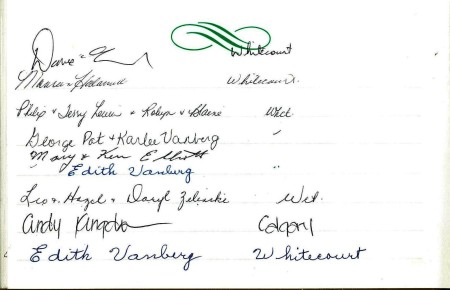 Dave + Whitecourt
Maura + Whitecourt.
Philip + Terry Lewis + Robyn + Blaine Wtct
George Pat + Karlee Vanberg "
Mary & Ken Elliott
Edith Vanberg "
Leo + Hazel + Daryl Zelinski Wct.
Andy Calgary
Edith Vanberg Whitecourt